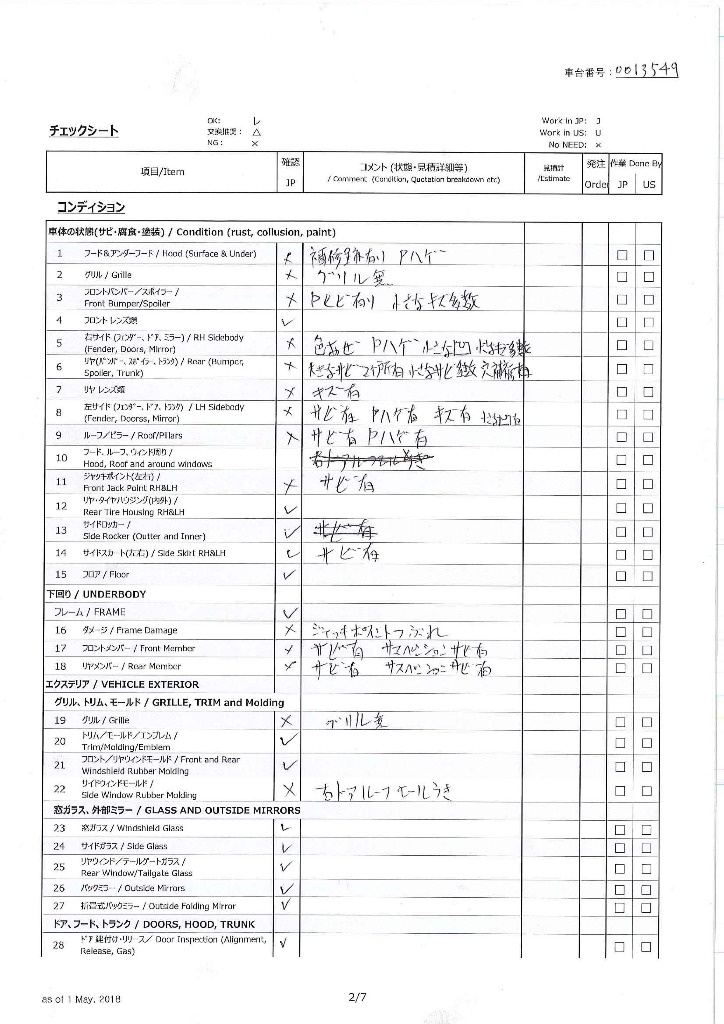 車台番号：0013549
チェックシート
OK: レ
交換推奨： △
NG： ×
Work in JP: J
Work in US: U
No NEED: ×
項目/Item 確認 JP コメント (状態・見積詳細等) / Comment (Condition, Quotation breakdown etc) 見積計 /Estimate 発注 Order 作業 Done By JP US
コンディション
車体の状態(サビ・腐食・塗装) / Condition (rust, collusion, paint)
1 フード&アンダーフード / Hood (Surface & Under) × 補修跡有り Pハゲ □ □
2 グリル / Grille × グリル無 □ □
3 フロントバンパー／スポイラー / Front Bumper/Spoiler × 有り 小さなキズ多数 □ □
4 フロントレンズ類 ✓ □ □
5 右サイド (フェンダー、ドア、ミラー) / RH Sidebody (Fender, Doors, Mirror) × 色あせ Pハゲ 小さな凹 □ □
6 リヤ(バンパー、スポイラー、トランク) / Rear (Bumper, Spoiler, Trunk) × サビ 2ヶ所有 小さなサビ多数 □ □
7 リヤ レンズ類 × キズ有 □ □
8 左サイド (フェンダー、ドア、トランク) / LH Sidebody (Fender, Doorss, Mirror) × サビ有 Pハゲ有 キズ有 小さな凹有 □ □
9 ルーフ／ピラー / Roof/Pillars × サビ有 Pハゲ有 □ □
10 フード、ルーフ、ウィンド周り / Hood, Roof and around windows □ □
11 ジャッキポイント(左右) / Front Jack Point RH&LH × サビ有 □ □
12 リヤ・タイヤハウジング(内外) / Rear Tire Housing RH&LH ✓ □ □
13 サイドロッカー / Side Rocker (Outter and Inner) ✓ サビ有 □ □
14 サイドスカート(左右) / Side Skirt RH&LH ✓ サビ有 □ □
15 フロア / Floor ✓ □ □
下回り / UNDERBODY
フレーム / FRAME ✓ □ □
16 ダメージ / Frame Damage × ジャッキポイントつぶれ □ □
17 フロントメンバー / Front Member × サビ有 サスペンションサビ有 □ □
18 リヤメンバー / Rear Member × サビ有 サスペンションサビ有 □ □
エクステリア / VEHICLE EXTERIOR
グリル、トリム、モールド / GRILLE, TRIM and Molding
19 グリル / Grille × グリル無 □ □
20 トリム／モールド／エンブレム / Trim/Molding/Emblem ✓ □ □
21 フロント／リヤウィンドモールド / Front and Rear Windshield Rubber Molding ✓ □ □
22 サイドウィンドモールド / Side Window Rubber Molding × 右ドアルーフモールうき □ □
窓ガラス、外部ミラー / GLASS AND OUTSIDE MIRRORS
23 窓ガラス / Windshield Glass ✓ □ □
24 サイドガラス / Side Glass ✓ □ □
25 リヤウィンド／テールゲートガラス / Rear Window/Tailgate Glass ✓ □ □
26 バックミラー / Outside Mirrors ✓ □ □
27 折畳式バックミラー / Outside Folding Mirror ✓ □ □
ドア、フード、トランク / DOORS, HOOD, TRUNK
28 ドア 建付け・リリース／ Door Inspection (Alignment, Release, Gas) ✓ □ □
as of 1 May. 2018
2/7